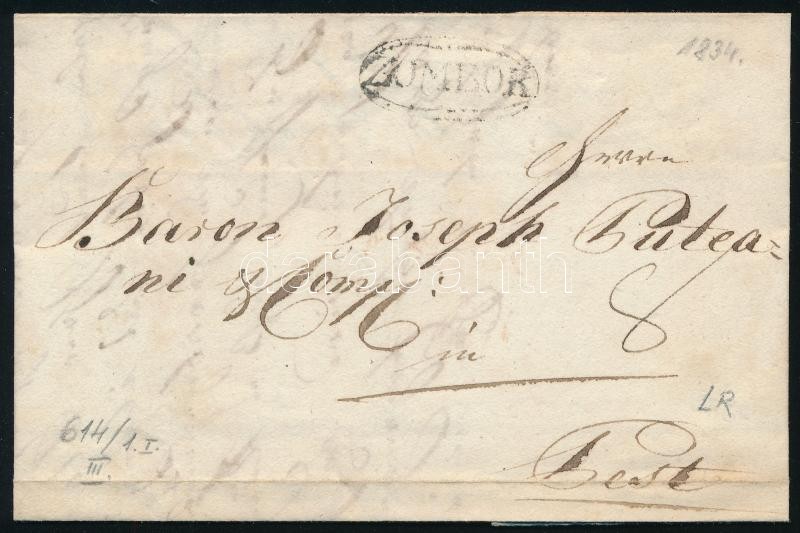 ZOMBOR
1834.
Herrn
Baron Joseph Putea-
ni & Comp:
in
8
Pest
614/1.I.
III.
LR
darabanth